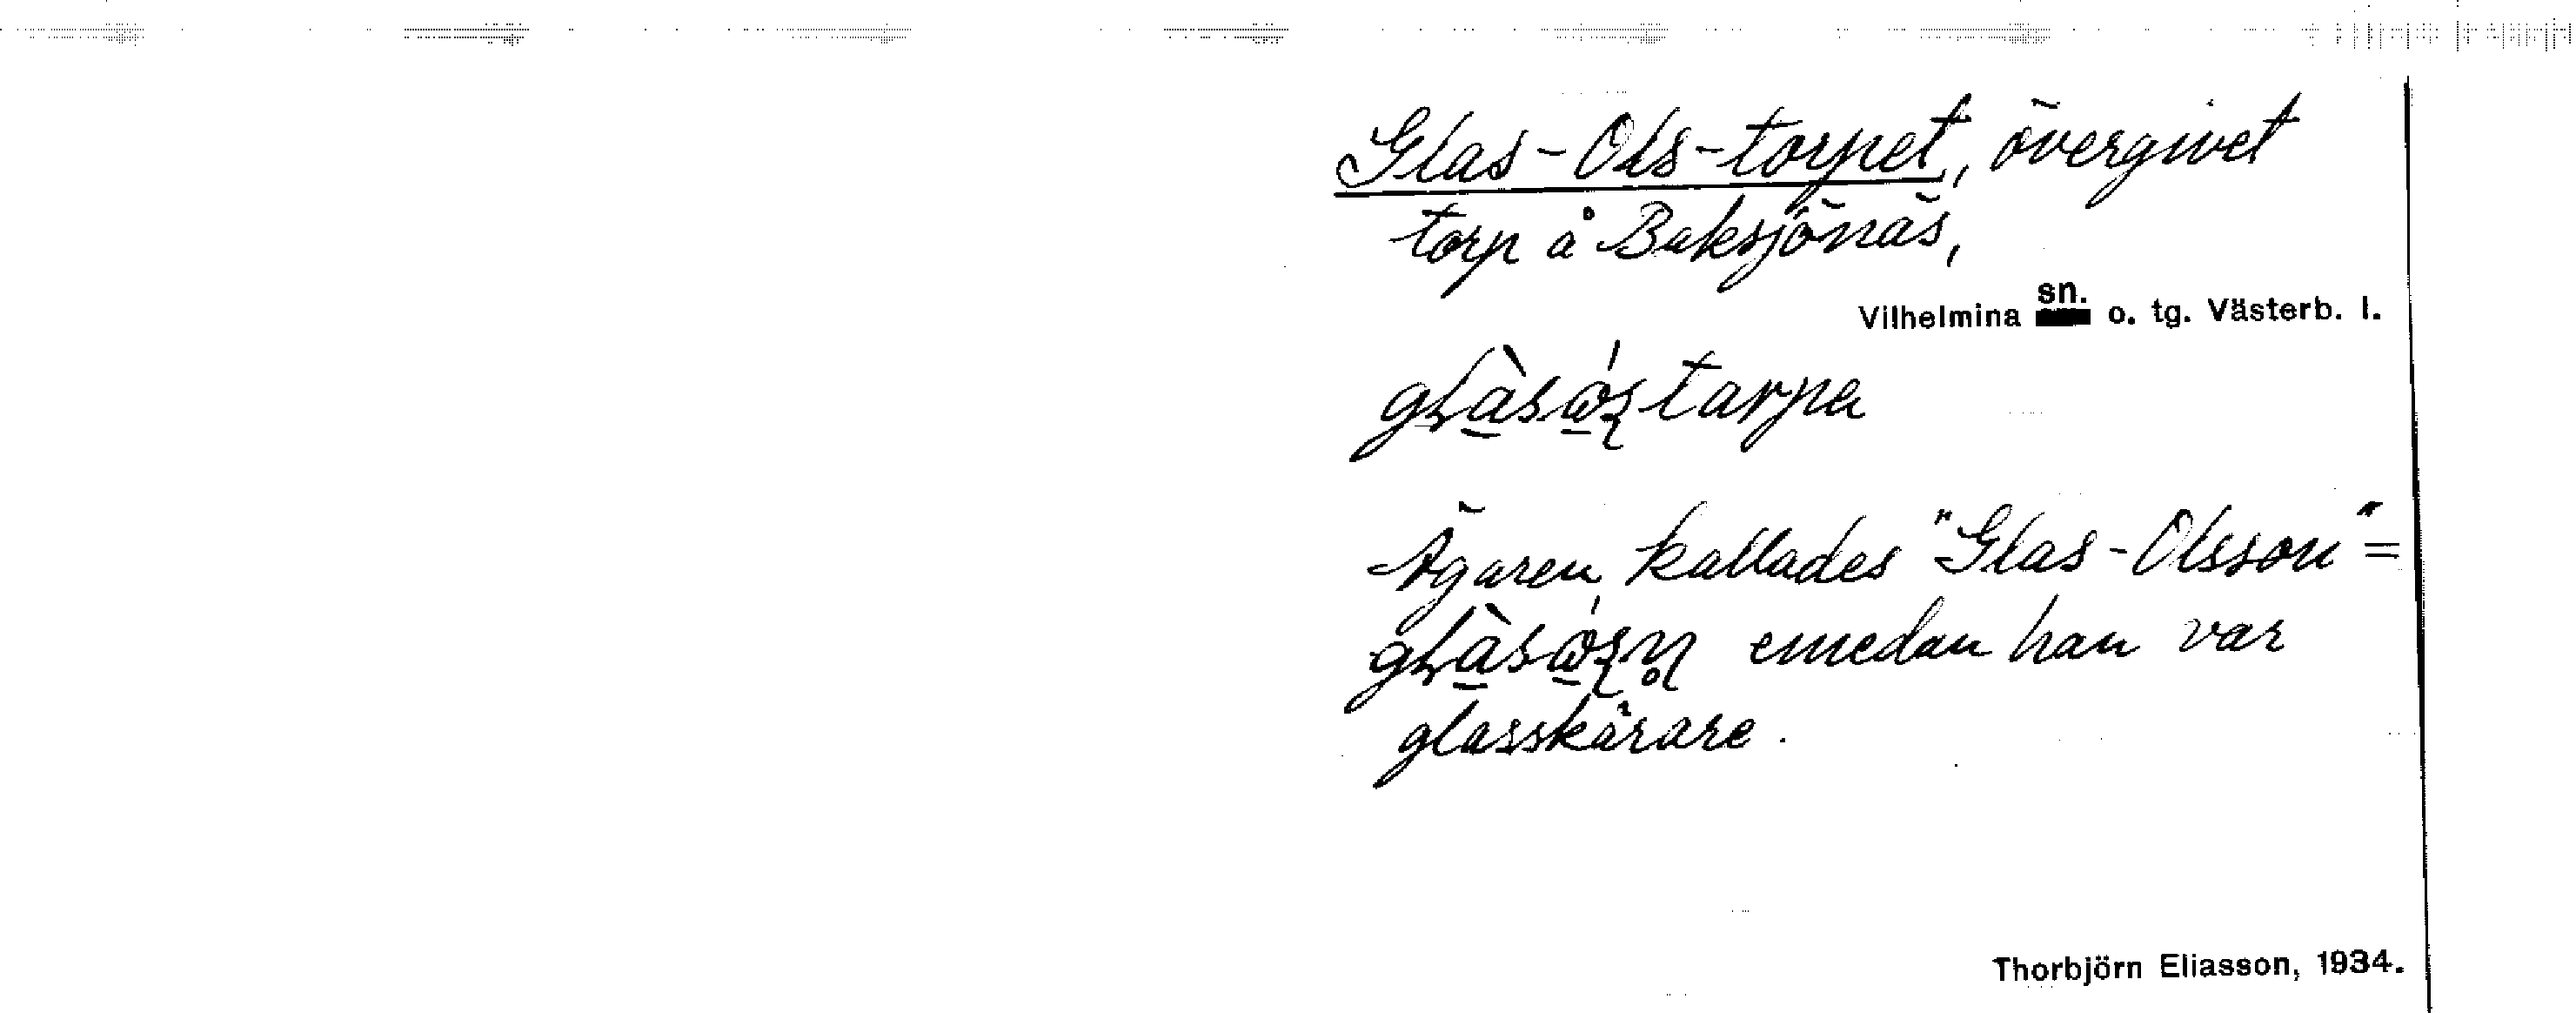 Glas-Ols-torpet, övergivet
torp å Baksjönäs,
Vilhelmina sn. o. tg. Västerb. l.
Ägaren kallades "Glas-Olsson" =
emedan han var
glasskärare.
Thorbjörn Eliasson, 1934.